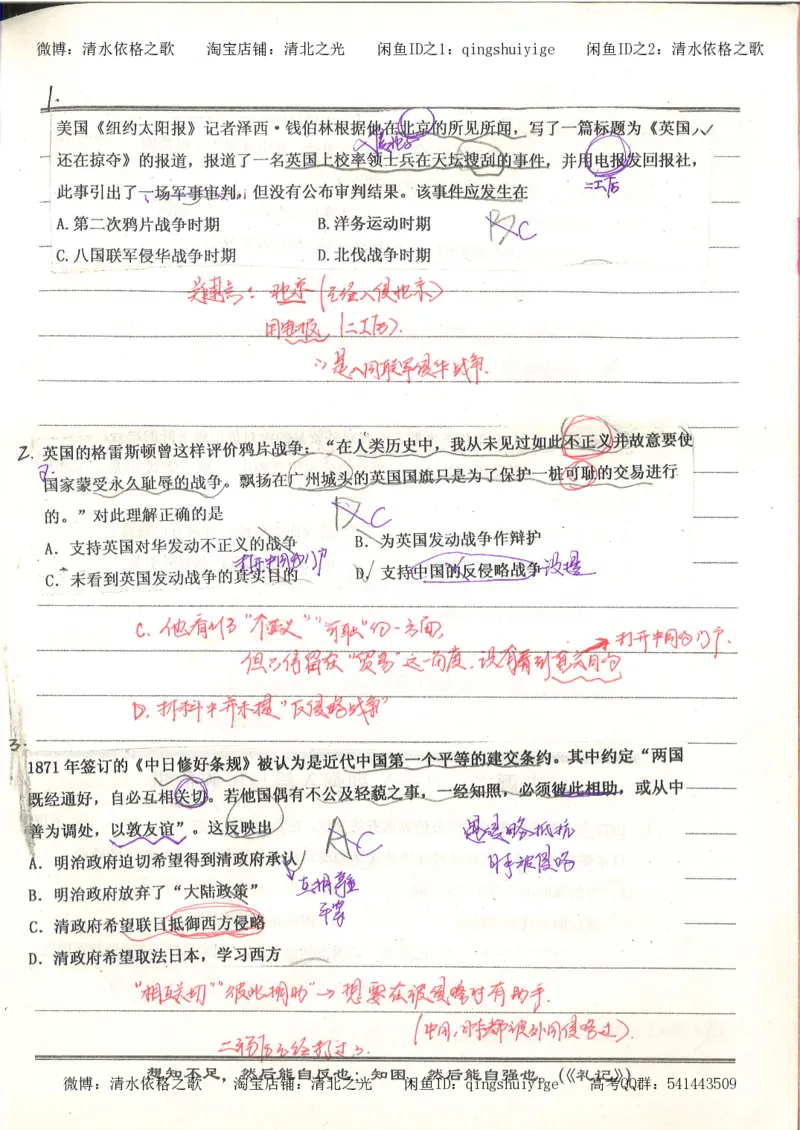 微博：清水依格之歌 淘宝店铺：清北之光 闲鱼ID之1：qingshuiyige 闲鱼ID之2：清水依格之歌
1.
美国《纽约太阳报》记者泽西·钱伯林根据他在北京的所见所闻，写了一篇标题为《英国人
还在掠夺》的报道，报道了一名英国上校率领士兵在天坛搜刮的事件，并用电报发回报社，
二工后
此事引出了一场军事审判，但没有公布审判结果。该事件应发生在
A.第二次鸦片战争时期 B.洋务运动时期
B C
C.八国联军侵华战争时期 D.北伐战争时期
关键点：北京（已经入侵北京）
用电报（二工后）.
∴是八国联军侵华战争.
2. 英国的格雷斯顿曾这样评价鸦片战争：“在人类历史中，我从未见过如此不正义并故意要使
国家蒙受永久耻辱的战争。飘扬在广州城头的英国国旗只是为了保护一桩可耻的交易进行
的。”对此理解正确的是
D C
A．支持英国对华发动不正义的战争 B．为英国发动战争作辩护
打开中国的门户
C．未看到英国发动战争的真实目的 D．支持中国的反侵略战争 没提
C. 他有以为“不正义”“可耻”的一方面，
但只停留在“贸易”这一角度，没有看到真实目的 → 打开中国的门户.
D. 材料中并未提“反侵略战争”
3.
1871年签订的《中日修好条规》被认为是近代中国第一个平等的建交条约。其中约定“两国
既经通好，自必互相关切。若他国偶有不公及轻藐之事，一经知照，必须彼此相助，或从中
善为调处，以敦友谊”。这反映出
A C
遇侵略抵抗
日本被侵略
A．明治政府迫切希望得到清政府承认
B．明治政府放弃了“大陆政策”
平等
C．清政府希望联日抵御西方侵略
D．清政府希望取法日本，学习西方
“相互关切”“彼此相助”→想要在被侵略时有助手.
（中国，日本都被外国侵略过）.
二鸦后已经打过了.
想知不足，然后能自反也；知困，然后能自强也。(《礼记》)
微博：清水依格之歌 淘宝店铺：清北之光 闲鱼ID：qingshuiyige 高考QQ群：541443509